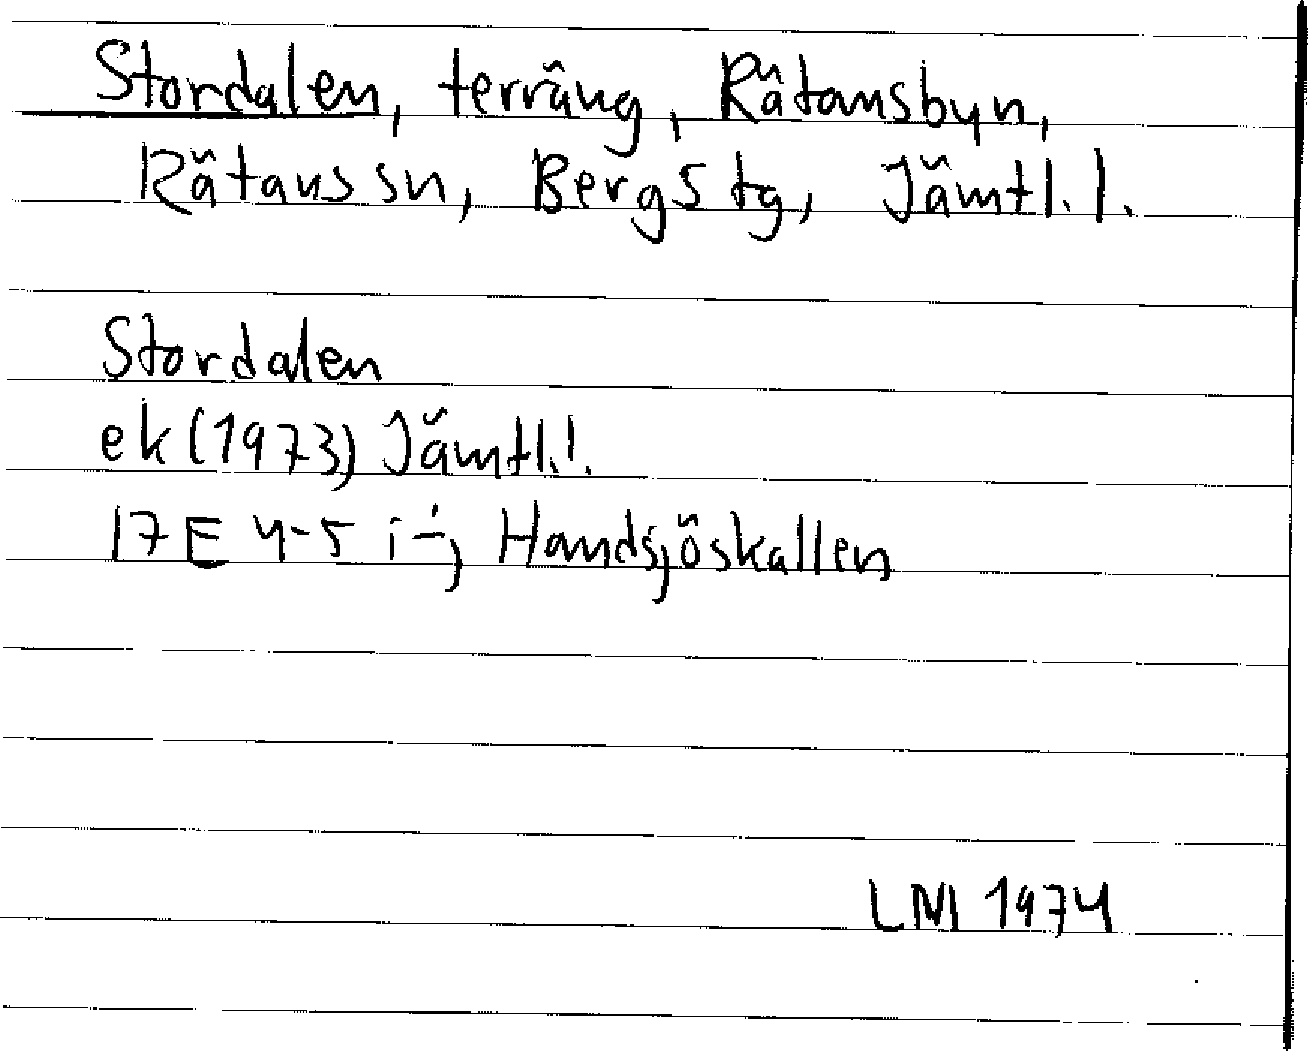 Stordalen, terräng, Rätansbyn,
Rätans sn, Bergs tg, Jämtl. l.
Stordalen
ek (1973) Jämtl. l.
17E 4-5 i-j, Handsjöskallen
LM 1974